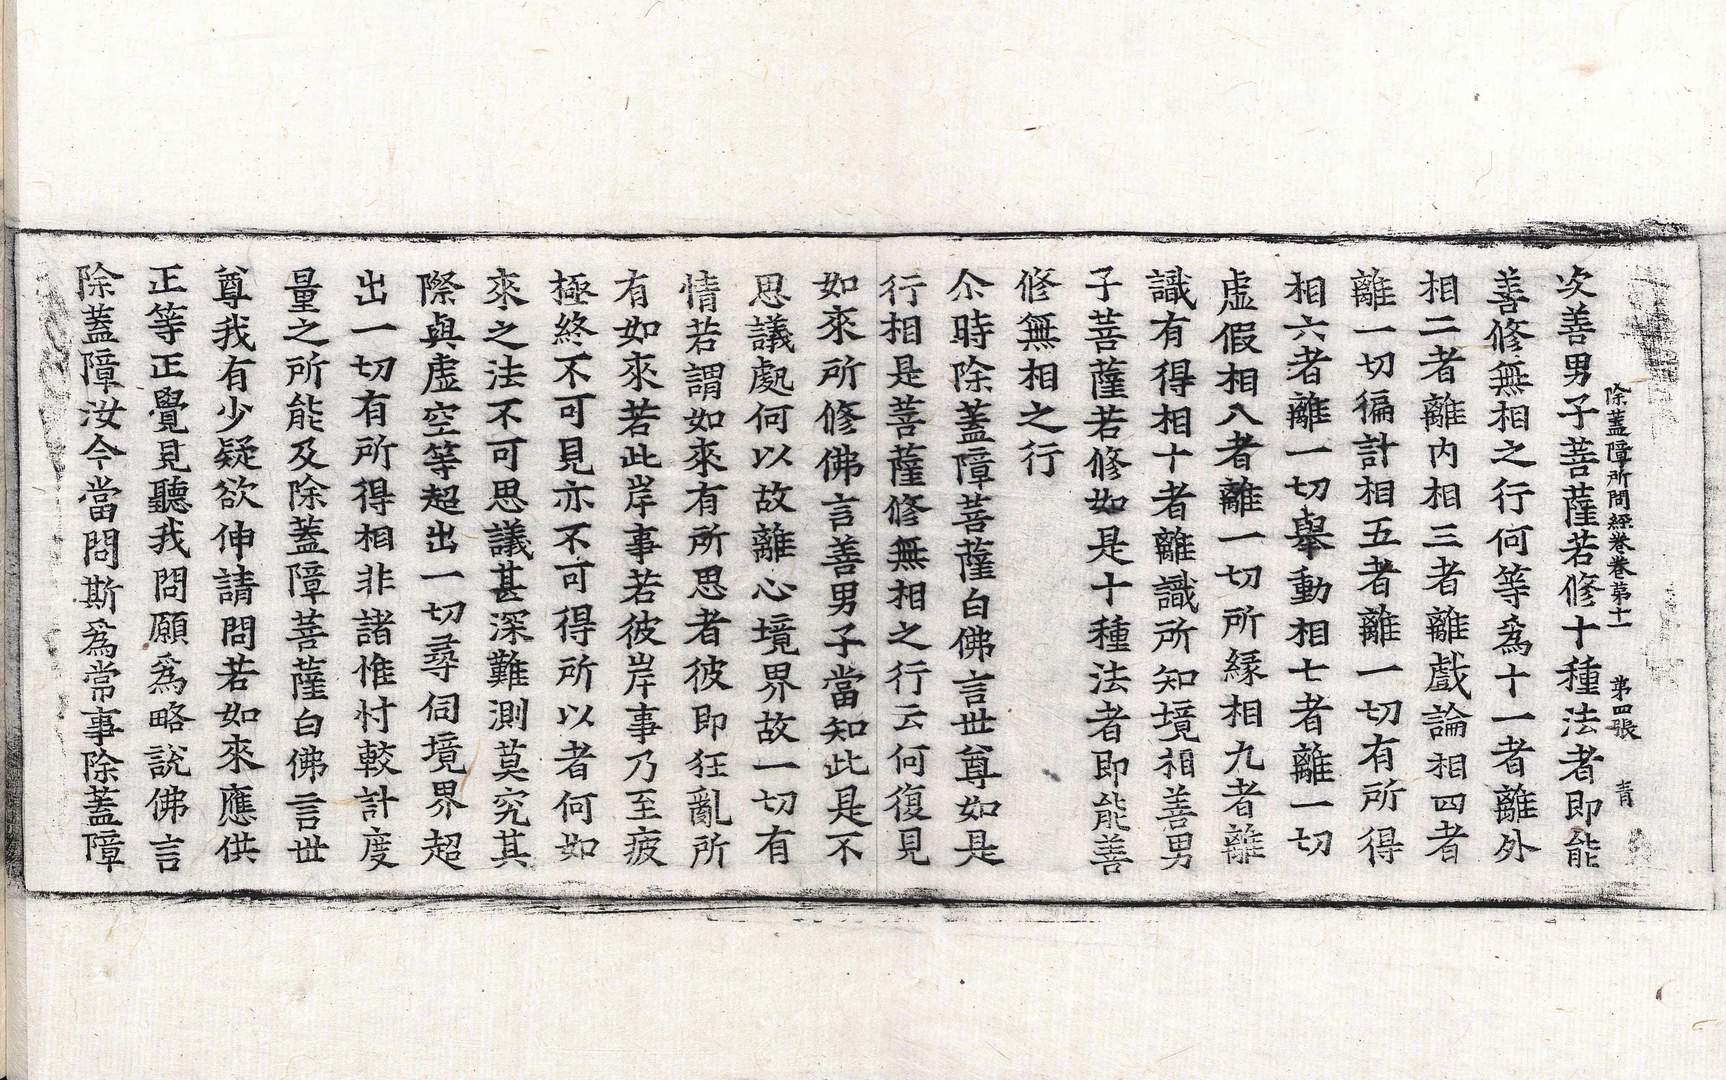 除蓋障所問經卷卷第十一　第四張　青
次善男子菩薩若修十種法者即能
善修無相之行何等爲十一者離外
相二者離内相三者離戲論相四者
離一切徧計相五者離一切有所得
相六者離一切舉動相七者離一切
虛假相八者離一切所緣相九者離
識有得相十者離識所知境相善男
子菩薩若修如是十種法者即能善
修無相之行
尒時除蓋障菩薩白佛言世尊如是
行相是菩薩修無相之行云何復見
如來所修佛言善男子當知此是不
思議處何以故離心境界故一切有
情若謂如來有所思者彼即狂亂所
有如來若此岸事若彼岸事乃至疲
極終不可見亦不可得所以者何如
來之法不可思議甚深難測莫究其
際與虛空等超出一切尋伺境界超
出一切有所得相非諸惟忖較計度
量之所能及除蓋障菩薩白佛言世
尊我有少疑欲伸請問若如來應供
正等正覺見聽我問願爲略說佛言
除蓋障汝今當問斯爲常事除蓋障